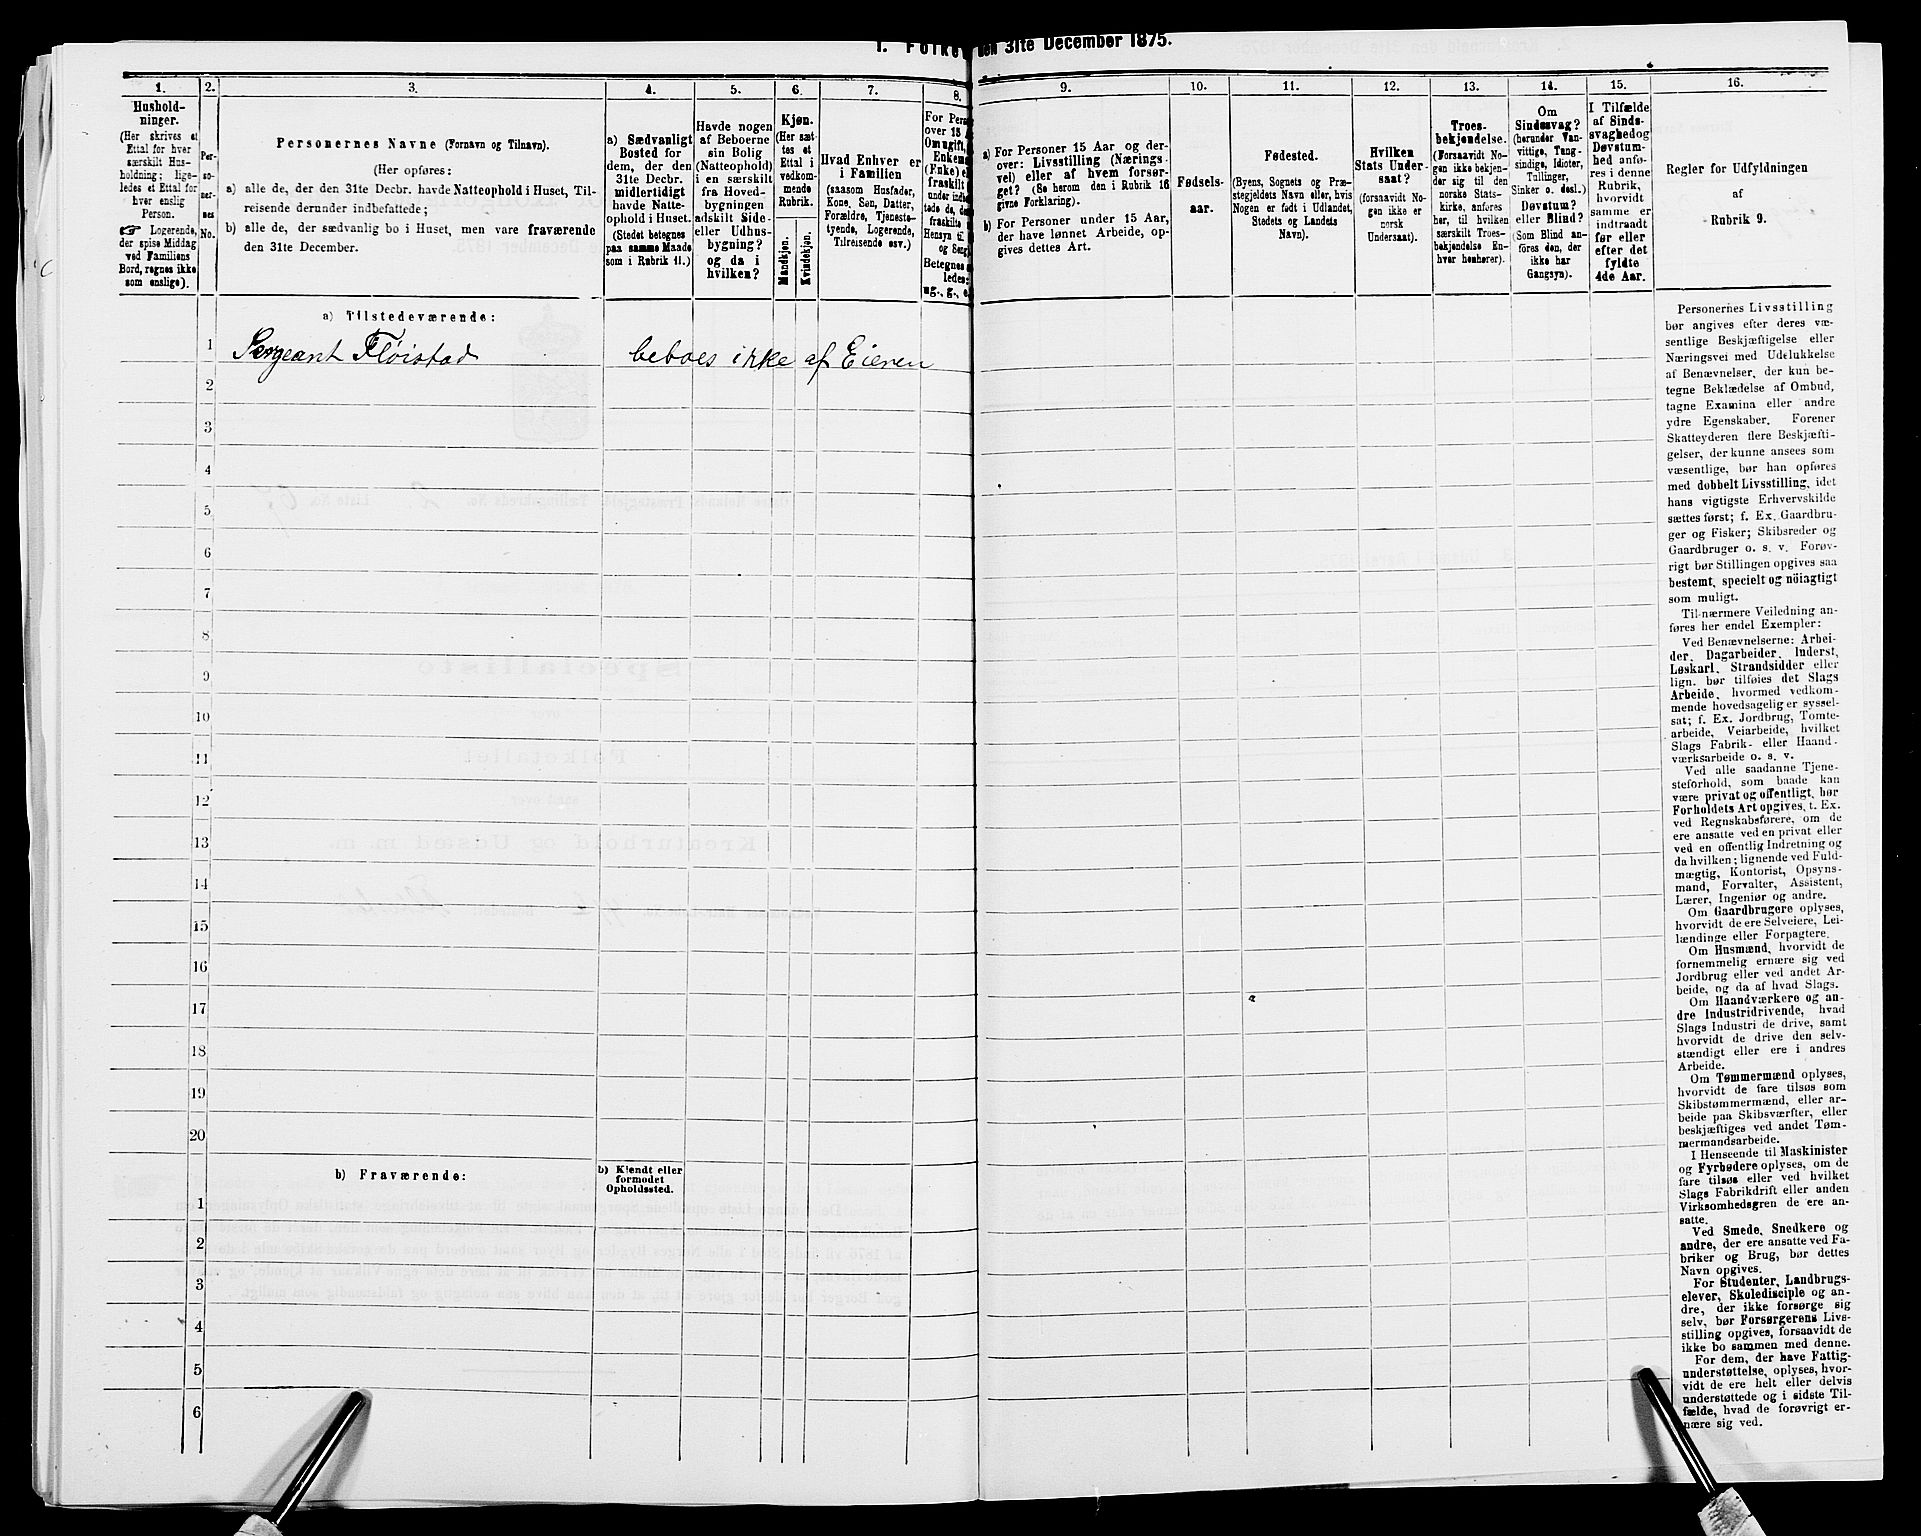 den 31te December 1875.
1.
Hushold-
ninger.
(Her skrives et
Ettal for hver
særskilt Hus-
holdning; lige-
ledes et Ettal for
hver enslig
Person.
☞ Logerende,
der spise Middag
ved Familiens
Bord, regnes ikke
som enslige).
2.
Per-
so-
ner-
nes
No.
3.
Personernes Navne (Fornavn og Tilnavn).
(Her opføres:
a) alle de, der den 31te Decbr. havde Natteophold i Huset, Til-
reisende derunder indbefattede;
b) alle de, der sædvanlig bo i Huset, men vare fraværende
den 31te December.
4.
a) Sædvanligt
Bosted for
dem, der den
31te Decbr.
midlertidigt
havde Natte-
ophold i Huset.
(Stedet betegnes
paa samme Maade
som i Rubrik 11.)
5.
Havde nogen
af Beboerne
sin Bolig
(Natteophold)
i en særskilt
fra Hoved-
bygningen
adskilt Side-
eller Udhus-
bygning?
og da i
hvilken?
6.
Kjøn.
(Her sæt-
tes et
Ettal i
vedkom-
mende
Rubrik.
Mandkjøn.
Kvindekjøn.
7.
Hvad Enhver er
i Familien
(saasom Husfader,
Kone, Søn, Datter,
Forældre, Tjeneste-
tyende, Logerende,
Tilreisende osv.)
8.
For Pers
over 15 A
Om ugift,
Enkem
(Enke) el
fraskilt
under indbe
tede de, de
fraskilte
Hensyn til
og Seng
Betegnes
ledes:
ug., g., e
9.
a) For Personer 15 Aar og der-
over: Livsstilling (Nærings-
vei) eller af hvem forsør-
get? (Se herom den i Rubrik 16
givne Forklaring).
b) For Personer under 15 Aar,
der have lønnet Arbeide, op-
gives dettes Art.
10.
Fødsels-
aar.
11.
Fødested.
(Byens, Sognets og Præ-
stegjeldets Navn eller, hvis
Nogen er født i Udlandet,
Stedets og Landets
Navn).
12.
Hvilken
Stats Under-
saat?
(forsaavidt No-
gen ikke er
norsk
Undersaat).
13.
Troes-
bekjendelse.
(Forsaavidt No-
gen ikke bekjen-
der sig til den
norske Stats-
kirke, anføres
her, til hvilken
særskilt Troes-
bekjendelse En-
hver henhører).
14.
Om
Sindssvag?
(herunder Van-
vittige, Tung-
sindige, Idioter,
Tullinger,
Sinker o. desl.)
Døvstum?
eller Blind?
(Som Blind an-
føres den, der
ikke har
Gangsyn).
15.
I Tilfælde
af Sinds-
svaghed og
Døvstum-
hed anfø-
res i denne
Rubrik,
hvorvidt
samme er
indtraadt
før eller
efter det
fyldte
4de Aar.
16.
Regler for Udfyldningen
af
Rubrik 9.
a) Tilstedeværende:
1 Sergeant Fløistad beboes ikke af Eieren
2
3
4
5
6
7
8
9
10
11
12
13
14
15
16
17
18
19
20
b) Fraværende:
b) Kjendt eller
formodet
Opholdssted.
1
2
3
4
5
6
Personernes Livsstilling
bør angives efter deres væ-
sentlige Beskjæftigelse eller
Næringsvei med Udelukkelse
af Benævnelser, der kun be-
tegne Beklædelse af Ombud,
tagne Examina eller andre
ydre Egenskaber. Forener
Skatteyderen flere Beskjæfti-
gelser, der kunne ansees som
væsentlige, bør han opføres
med dobbelt Livsstilling, idet
hans vigtigste Erhvervskilde
sættes først; f. Ex. Gaardbru-
ger og Fisker; Skibsreder og
Gaardbruger o. s. v. Forøv-
rigt bør Stillingen opgives saa
bestemt, specielt og nöiagtigt
som muligt.
Til nærmere Veiledning an-
føres her endel Exempler:
Ved Benævnelserne: Arbei-
der, Dagarbeider, Inderst,
Løskarl, Strandsidder eller
lign. bør tilføies det Slags
Arbeide, hvormed vedkom-
mende hovedsagelig er syssel-
sat; f. Ex. Jordbrug, Tomte-
arbeide, Veiarbeide, hvilket
Slags Fabrik- eller Haand-
værksarbeide o. s. v.
Ved alle saadanne Tjene-
steforhold, som baade kan
være privat og offentligt, bør
Forholdets Art opgives, t. Ex.
ved Regnskabsførere, om de
ere ansatte ved en privat eller
ved en offentlig Indretning og
da hvilken; lignende ved Fuld-
mægtig, Kontorist, Opsyns-
mand, Forvalter, Assistent,
Lærer, Ingeniør og andre.
Om Gaardbrugere oplyses,
hvorvidt de ere Selveiere, Lei-
lændinge eller Forpagtere.
Om Husmænd, hvorvidt de
fornemmelig ernære sig ved
Jordbrug eller ved andet Ar-
beide, og da af hvad Slags.
Om Haandværkere og an-
dre Industridrivende, hvad
Slags Industri de drive, samt
hvorvidt de drive den selv-
stændigt eller ere i andres
Arbeide.
Om Tømmermænd oplyses,
hvorvidt de fare tilsøs som
Skibstømmermænd, eller ar-
beide paa Skibsværfter, eller
beskjæftiges ved andet Tøm-
mermandsarbeide.
I Henseende til Maskinister
og Fyrbødere oplyses, om de
fare tilsøs eller ved hvilket
Slags Fabrikdrift eller anden
Virksomhedsgren de ere an-
satte.
Ved Smede, Snedkere og
andre, der ere ansatte ved Fa-
briker og Brug, bør dettes
Navn opgives.
For Studenter, Landbrugs-
elever, Skoledisciple og an-
dre, der ikke forsørge sig
selv, bør Forsørgerens Livs-
stilling opgives, forsaavidt de
ikke bo sammen med denne.
For dem, der have Fattig-
understøttelse, oplyses, hvor-
vidt de ere helt eller delvis
understøttede og i sidste Til-
fælde, hvad de forøvrigt er-
nære sig ved.